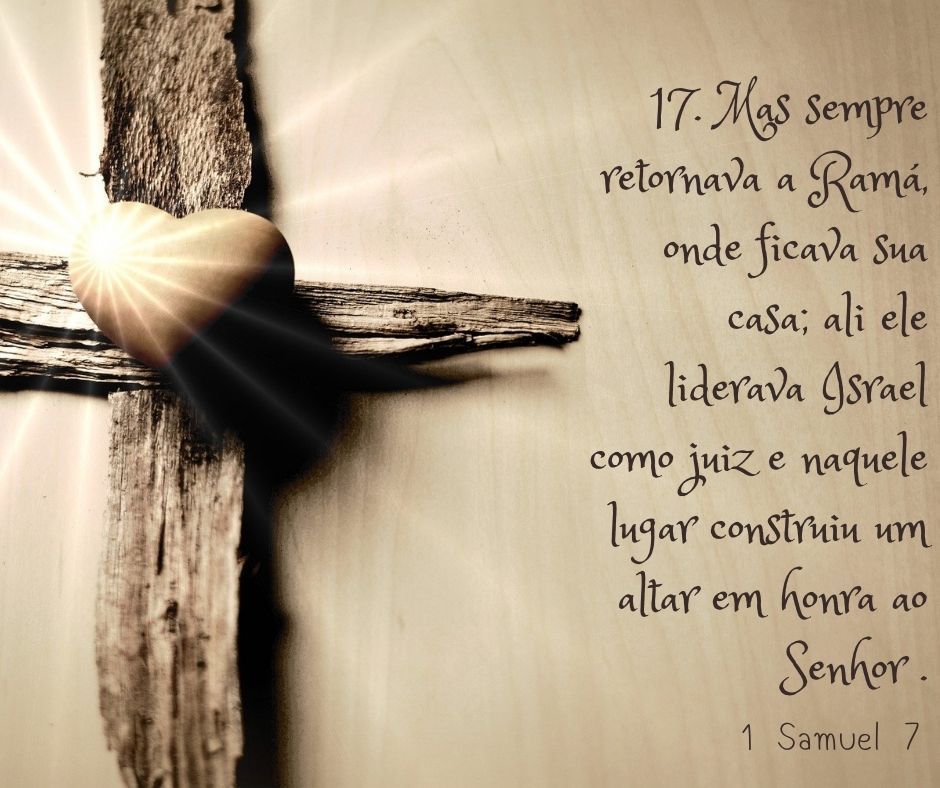 17. Mas sempre
retornava a Ramá,
onde ficava sua
casa; ali ele
liderava Israel
como juiz e naquele
lugar construiu um
altar em honra ao
Senhor .
1 Samuel 7